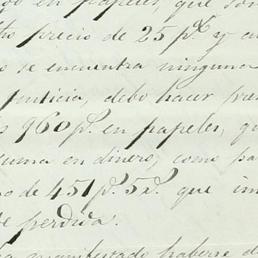 en papeles, que son
precio de 25 p.s y cu
se encuentra ninguna
justicia, debo hacer pre
960 p.s en papeles, qu
suma en dinero, como pa
de 451 p.s 5 r.s que im
perdida.
manifestado haberse d